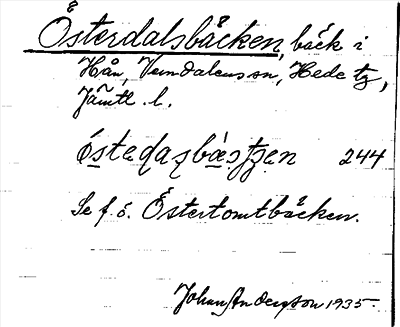 Österdalsbäcken, bäck i
Hån, Vemdalens sn, Hede tg,
Jämtl. l.
ǿstedaʂbæ̀sʃʒen 244
Se f. ö. Östertomtbäcken.
Johan Anderson 1935.